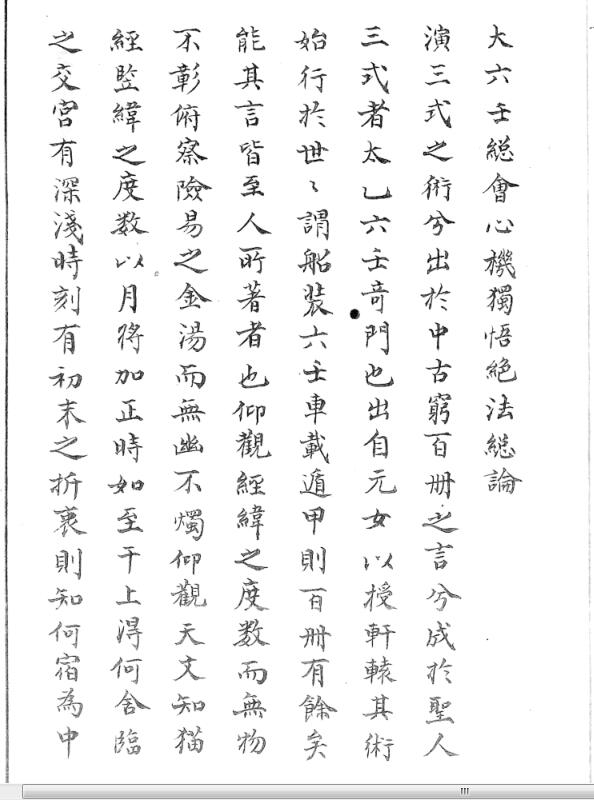 大六壬總會心機獨悟絕法總論
演三式之術兮出於中古窮百冊之言兮成於聖人
三式者太乙六壬奇門也出自元女以授軒轅其術
始行於世〻謂船裝六壬車載遁甲則百冊有餘矣
能其言皆至人所著者也仰觀經緯之度数而無物
不彰俯察險易之金湯而無幽不燭仰觀天文知猫
經監緯之度数以月將加正時如至干上得何舍臨
之交宮有深淺時刻有初末之折衷則知何宿為中